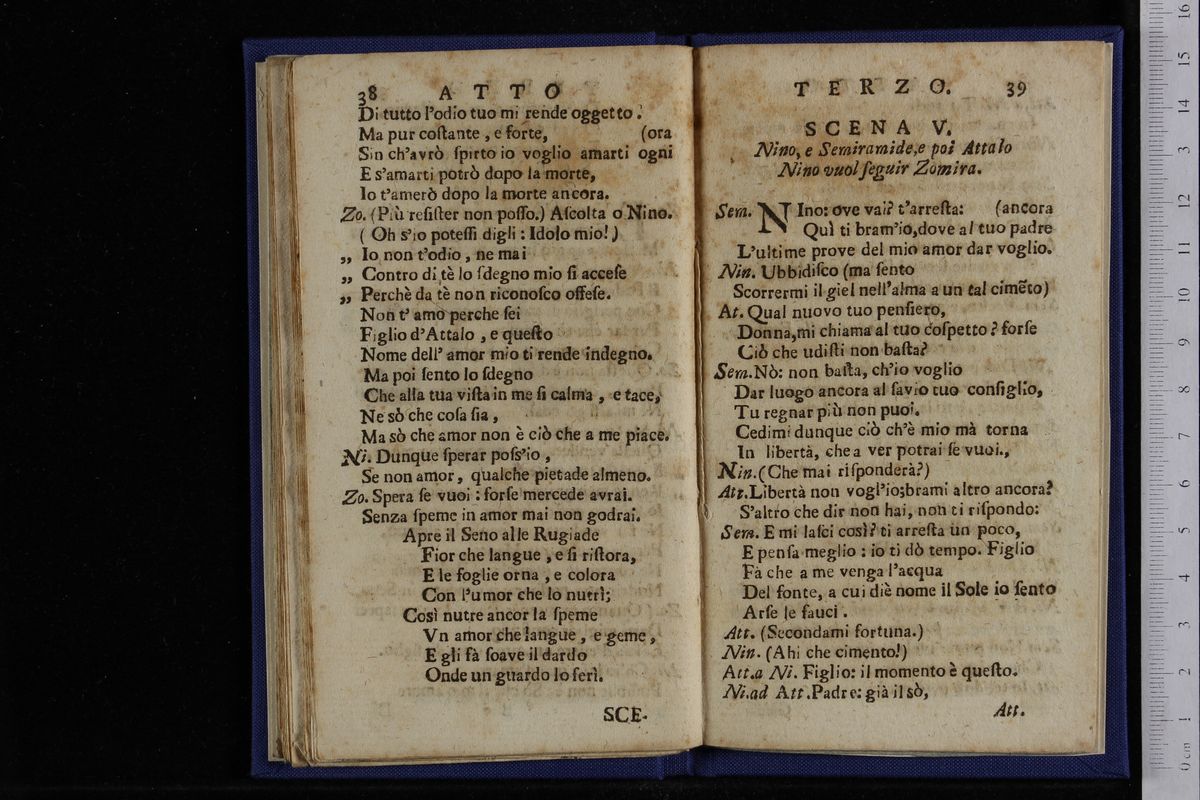 38 ATTO
Di tutto l'odio tuo mi rende oggetto.
Ma pur coſtante, e forte, (ora
Sin ch'avrò ſpirto io voglio amarti ogni
E s'amarti potrò dopo la morte,
Io t'amerò dopo la morte ancora.
Zo. (Più reſiſter non poſſo.) Aſcolta o Nino.
( Oh s'io poteſſi digli : Idolo mio!)
„ Io non t'odio, ne mai
„ Contro di tè lo ſdegno mio ſi acceſe
„ Perchè da tè non riconoſco offeſe.
Non t' amo perche ſei
Figlio d'Attalo, e queſto
Nome dell' amor mio ti rende indegno.
Ma poi ſento lo ſdegno
Che alla tua viſta in me ſi calma, e tace,
Ne sò che coſa ſia,
Ma sò che amor non è ciò che a me piace.
Ni. Dunque ſperar poſs'io,
Se non amor, qualche pietade almeno.
Zo. Spera ſe vuoi : forſe mercede avrai.
Senza ſpeme in amor mai non godrai.
Apre il Seno alle Rugiade
Fior che langue, e ſi riſtora,
E le foglie orna, e colora
Con l'umor che lo nutrì;
Così nutre ancor la ſpeme
Vn amor che langue, e geme,
E gli fà ſoave il dardo
Onde un guardo lo ferì.
SCE-
TERZO. 39
SCENA V.
Nino, e Semiramide, e poi Attalo
Nino vuol ſeguir Zomira.
Sem. NIno: ove vai? t'arreſta: (ancora
Quì ti bram'io, dove al tuo padre
L'ultime prove del mio amor dar voglio.
Nin. Ubbidiſco (ma ſento
Scorrermi il giel nell'alma a un tal cimẽto)
At. Qual nuovo tuo penſiero,
Donna, mi chiama al tuo coſpetto? forſe
Ciò che udiſti non baſta?
Sem. Nò: non baſta, ch'io voglio
Dar luogo ancora al ſavio tuo conſiglio,
Tu regnar più non puoi.
Cedimi dunque ciò ch'è mio mà torna
In libertà, che a ver potrai ſe vuoi.,
Nin. (Che mai riſponderà?)
Att. Libertà non vogl'io; brami altro ancora?
S'altro che dir non hai, non ti riſpondo:
Sem. E mi laſci così? ti arreſta un poco,
E penſa meglio : io ti dò tempo. Figlio
Fà che a me venga l'acqua
Del fonte, a cui diè nome il Sole io ſento
Arſe le fauci.
Att. (Secondami fortuna.)
Nin. (Ahi che cimento!)
Att. a Ni. Figlio: il momento è queſto.
Ni. ad Att. Padre: già il sò,
Att.
0 cm 1 2 3 4 5 6 7 8 9 10 11 12 13 14 15 16